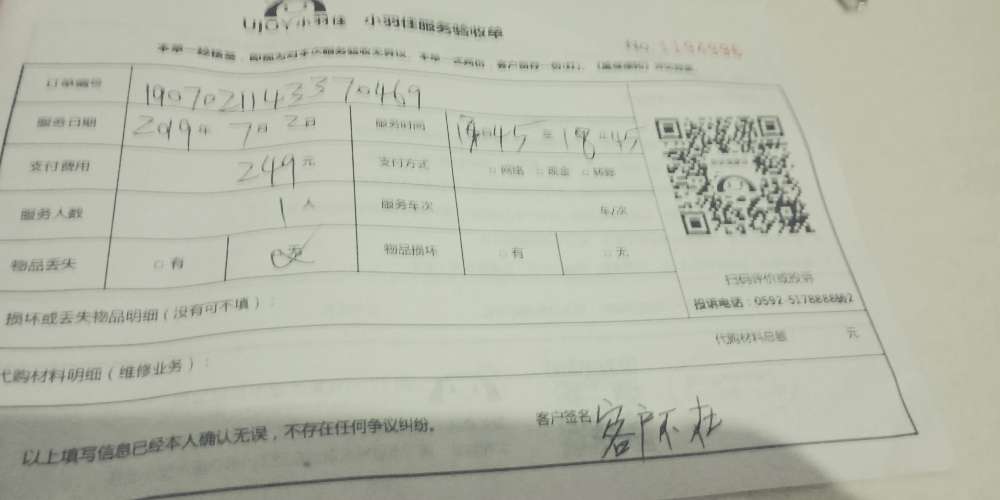 UJOY小羽佳 小羽佳服务验收单
No. 1194996
订单编号 19070211433370469
服务日期 2019年7月2日 服务时间 至 18:45
支付费用 249元 支付方式 □网络 □现金 □转账
服务人数 1人 服务车次 车/次
物品丢失 □有 □无 物品损坏 □有 □无
扫码评价或投诉
投诉电话：0592-5178888转2
损坏或丢失物品明细（没有可不填）：
代购材料总额 元
代购材料明细（维修业务）：
以上填写信息已经本人确认无误，不存在任何争议纠纷。
客户签名 客户不在